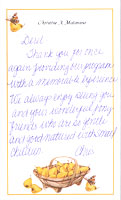 Christine A. Malanowic
Dear
Thank you for once
again providing our program
with a memorable experience
We always enjoy seeing you
and your wonderful furry
friends who are so gentle
and good natured with small
children
Chris